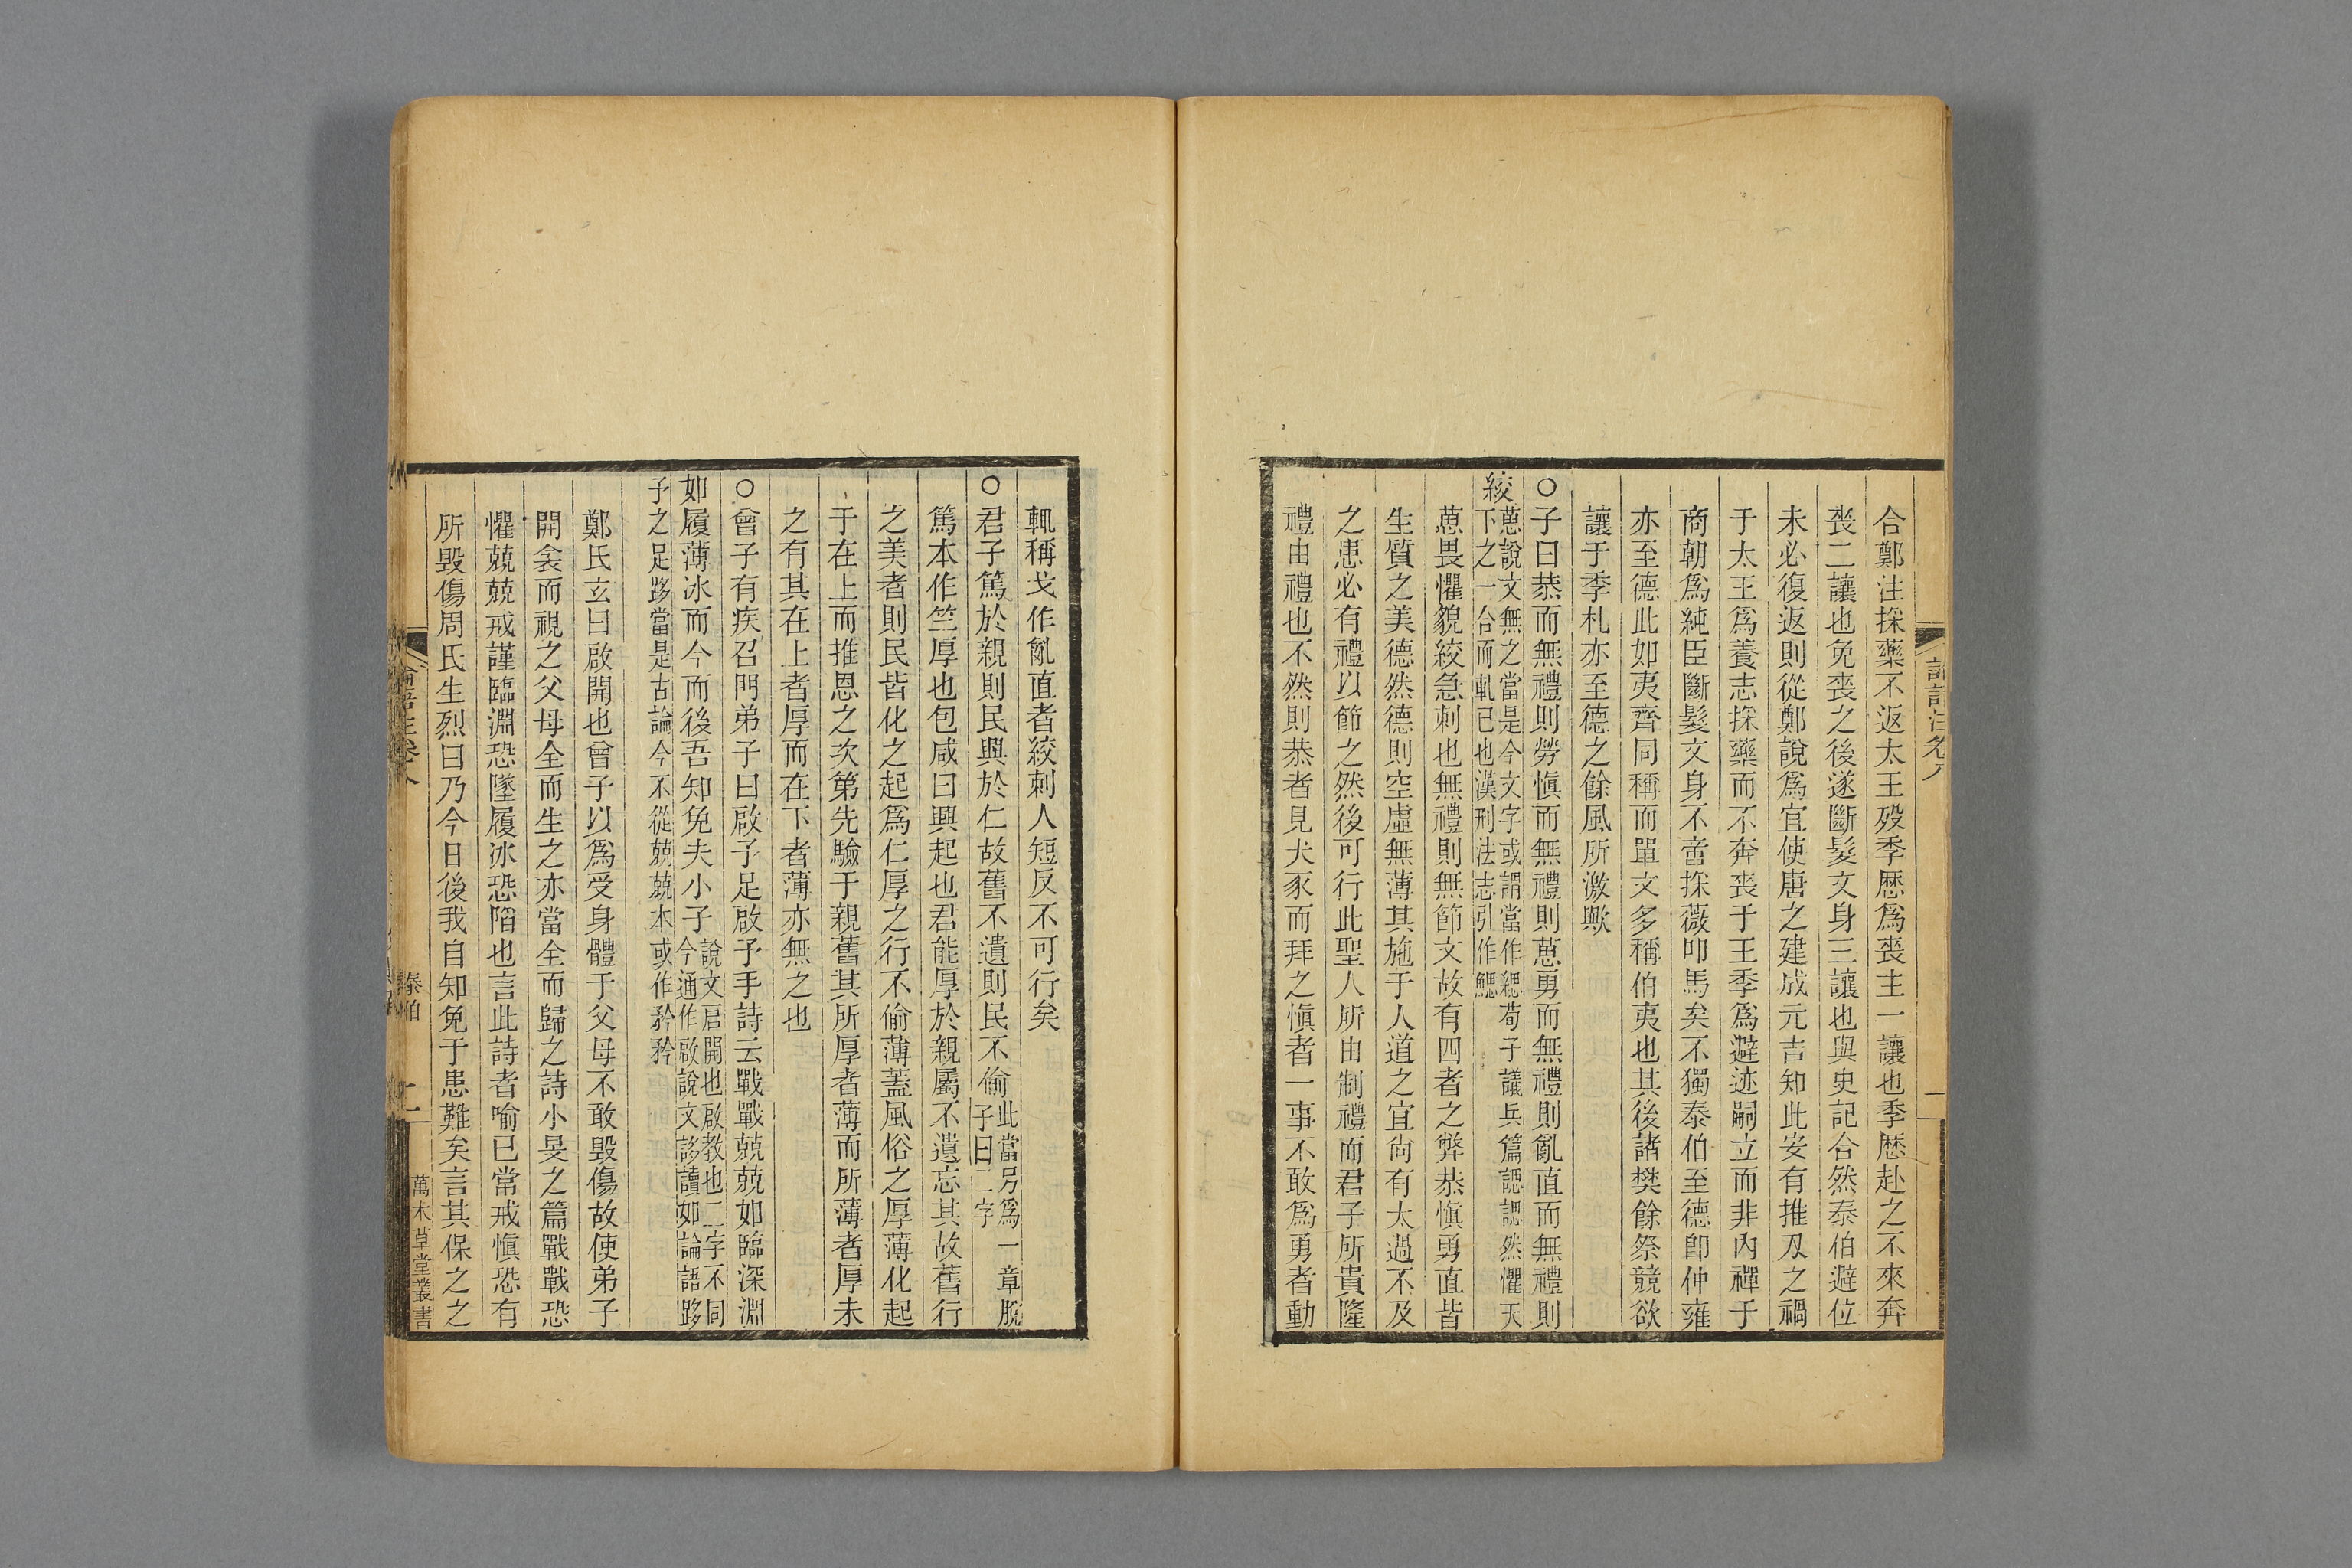 合鄭注採藥不返太王歿季歷爲喪主一讓也季歷赴之不來奔
喪二讓也免喪之後遂斷髮文身三讓也與史記合然泰伯避位
未必復返則從鄭說爲宜使唐之建成元吉知此安有推刃之禍
于太王爲養志採藥而不奔喪于王季爲避迹嗣立而非內禪于
商朝爲純臣斷髮文身不啻採薇叩馬矣不獨泰伯至德卽仲雍
亦至德此如夷齊同稱而單文多稱伯夷也其後諸樊餘祭競欲
讓于季札亦至德之餘風所激歟
○子曰恭而無禮則勞愼而無禮則葸勇而無禮則亂直而無禮則
絞
葸說文無之當是今文字或謂當作諰荀子議兵篇諰諰然懼天
下之一合而軋己也漢刑法志引作鰓
葸畏懼貌絞急刺也無禮則無節文故有四者之弊恭愼勇直皆
生質之美德然德則空虛無薄其施于人道之宜尙有太過不及
之患必有禮以節之然後可行此聖人所由制禮而君子所貴隆
禮由禮也不然則恭者見犬豕而拜之愼者一事不敢爲勇者動
輒稱戈作亂直者絞刺人短反不可行矣
○君子篤於親則民興於仁故舊不遺則民不偷
此當另爲一章脫
子曰二字
篤本作竺厚也包咸曰興起也君能厚於親屬不遺忘其故舊行
之美者則民皆化之起爲仁厚之行不偷薄蓋風俗之厚薄化起
于在上而推恩之次第先驗于親舊其所厚者薄而所薄者厚未
之有其在上者厚而在下者薄亦無之也
○曾子有疾召門弟子曰啟予足啟予手詩云戰戰兢兢如臨深淵
如履薄冰而今而後吾知免夫小子
說文启開也啟教也二字不同
今通作啟說文誃讀如論語跢
予之足跢當是古論今不從兢兢本或作矜矜
鄭氏玄曰啟開也曾子以爲受身體于父母不敢毀傷故使弟子
開衾而視之父母全而生之亦當全而歸之詩小旻之篇戰戰恐
懼兢兢戒謹臨淵恐墜履冰恐陷也言此詩者喻已常戒愼恐有
所毀傷周氏生烈曰乃今日後我自知免于患難矣言其保之之
論語注卷八
泰伯
二
萬木草堂叢書